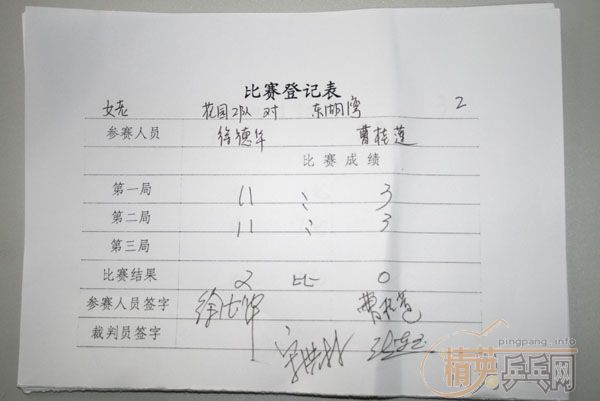 比赛登记表
女老 花园2队 对 东湖湾 2
参赛人员 徐德华 曹桂莲
比赛成绩
第一局 11 : 3
第二局 11 : 3
第三局
比赛结果 2 比 0
参赛人员签字 徐德华 曹桂莲
裁判员签字
pingpang.info
精英乒乓网